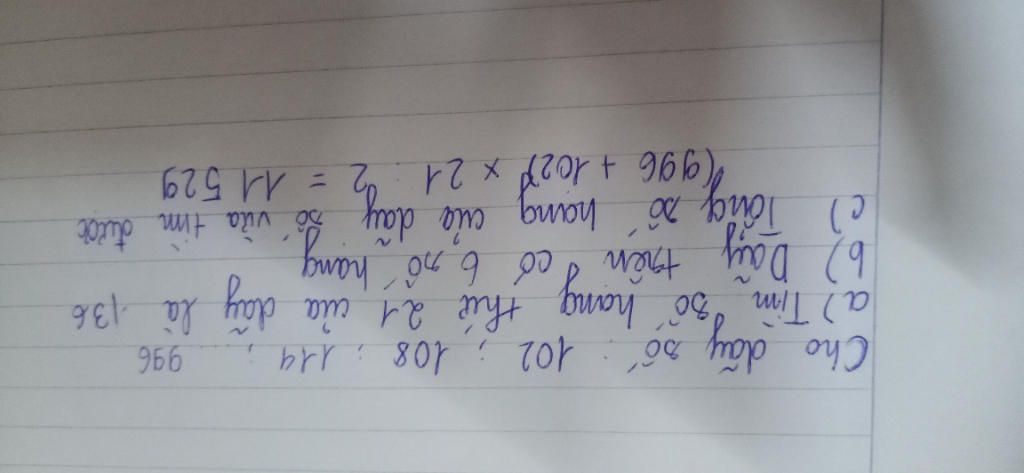 Cho dãy số : 102 ; 108 ; 114 ; ... 996
a) Tìm số hạng thứ 21 của dãy là 136
b) Dãy trên có 6 số hạng
c) Tổng số hạng của dãy số vừa tìm được
(996 + 102) × 21 : 2 = 11 529